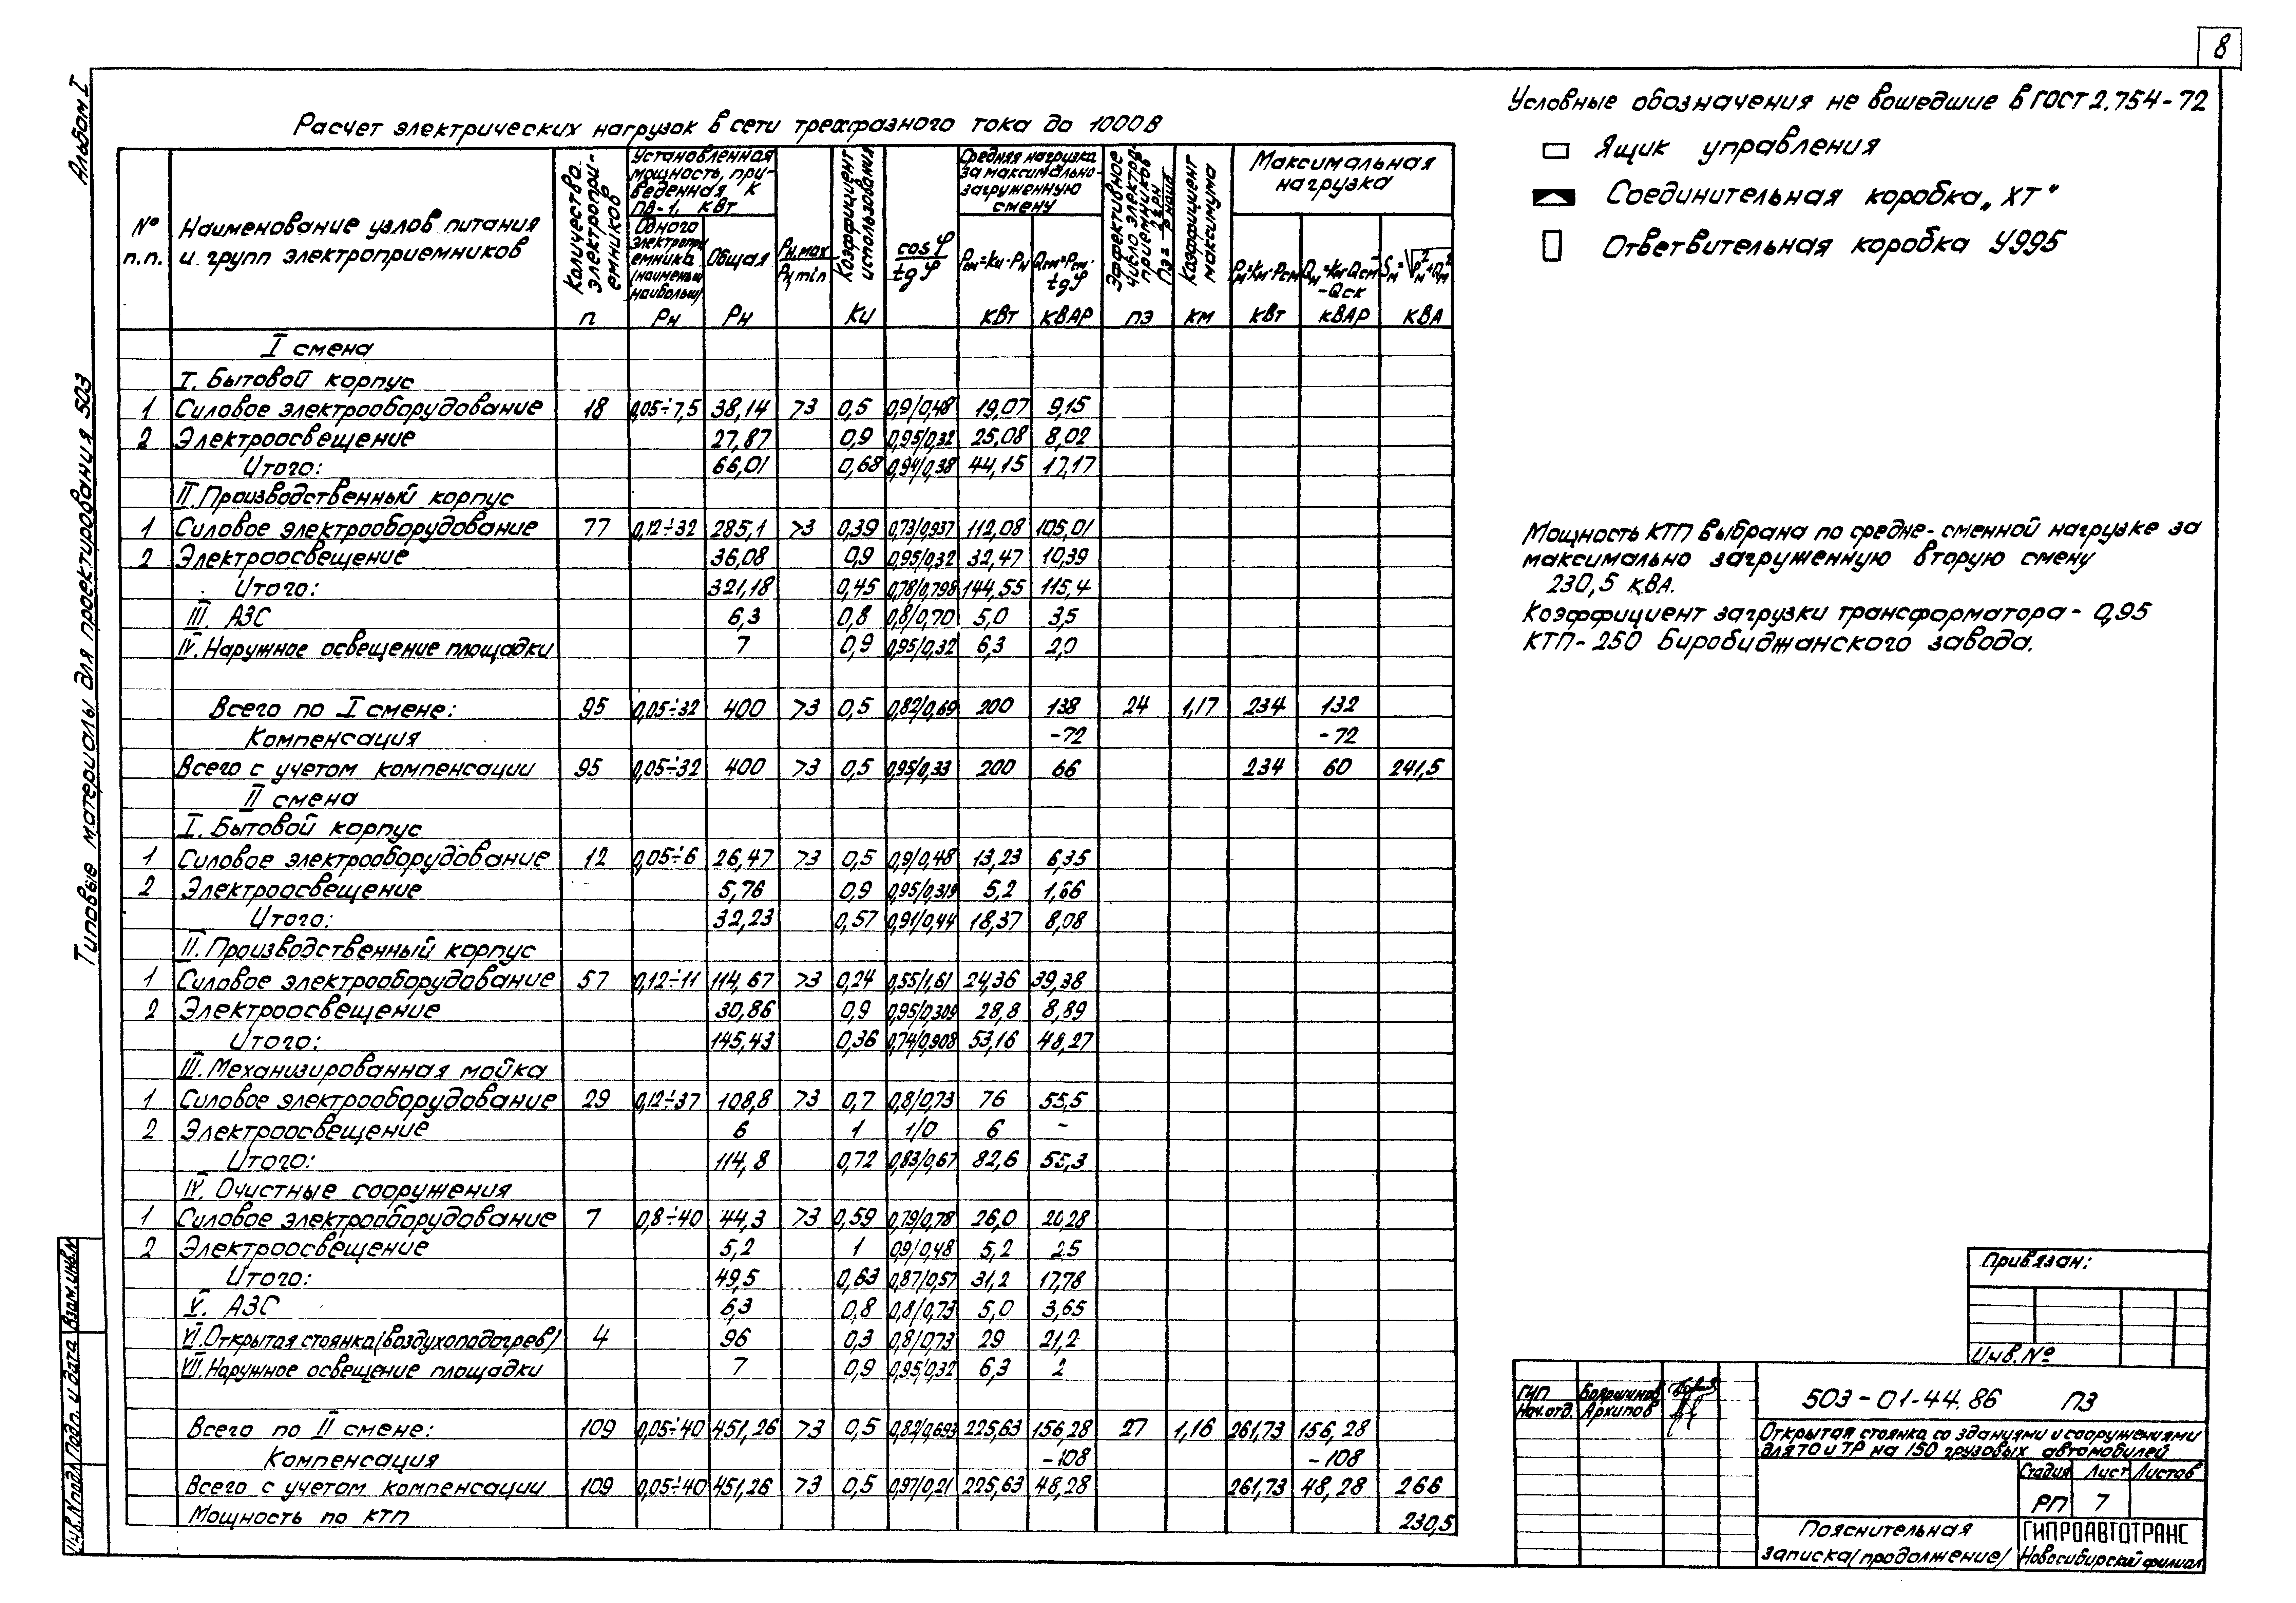 8
Альбом I
Типовые материалы для проектирования 503
Расчет электрических нагрузок в сети трехфазного тока до 1000 В
№ п.п.
Наименование узлов питания и групп электроприемников
Количество электроприемников n
Установленная мощность, приведенная к ПВ-1, кВт
Одного электроприемника (наименьш/наибольш) Рн
Общая Рн
Рн.max/Рн.min
Коэффициент использования Ки
cos φ/tg φ
Средняя нагрузка за максимально-загруженную смену
Рсм=Ки·Рн кВт
Qсм=Рсм·tgφ кВАР
Эффективное число электроприемников nэ
Коэффициент максимума Км
Максимальная нагрузка
Рм=Км·Рсм кВт
Qм=Км·Qсм-Qск кВАР
Sм=√Рм²+Qм² кВА
I смена
I. Бытовой корпус
1 Силовое электрооборудование 18 0,05÷7,5 38,14 >3 0,5 0,9/0,48 19,07 9,15
2 Электроосвещение 27,87 0,9 0,95/0,32 25,08 8,02
Итого: 66,01 0,68 0,94/0,38 44,15 17,17
II. Производственный корпус
1 Силовое электрооборудование 77 0,12÷32 285,1 >3 0,39 0,73/0,937 112,08 105,01
2 Электроосвещение 36,08 0,9 0,95/0,32 32,47 10,39
Итого: 321,18 0,45 0,78/0,798 144,55 115,4
III. АЗС 6,3 0,8 0,8/0,70 5,0 3,5
IV. Наружное освещение площадки 7 0,9 0,95/0,32 6,3 2,0
Всего по I смене: 95 0,05÷32 400 >3 0,5 0,82/0,69 200 138 24 1,17 234 132
Компенсация -72 -72
Всего с учетом компенсации 95 0,05÷32 400 >3 0,5 0,95/0,33 200 66 234 60 241,5
II смена
I. Бытовой корпус
1 Силовое электрооборудование 12 0,05÷6 26,47 >3 0,5 0,9/0,48 13,23 6,35
2 Электроосвещение 5,76 0,9 0,95/0,319 5,2 1,66
Итого: 32,23 0,57 0,91/0,44 18,37 8,08
II. Производственный корпус
1 Силовое электрооборудование 57 0,12÷11 114,67 >3 0,24 0,55/1,61 24,36 39,38
2 Электроосвещение 30,86 0,9 0,95/0,309 28,8 8,89
Итого: 145,43 0,36 0,74/0,908 53,16 48,27
III. Механизированная мойка
1 Силовое электрооборудование 29 0,12÷37 108,8 >3 0,7 0,8/0,73 76 55,5
2 Электроосвещение 6 1 1/0 6 -
Итого: 114,8 0,72 0,83/0,67 82,6 55,3
IV. Очистные сооружения
1 Силовое электрооборудование 7 0,8÷40 44,3 >3 0,59 0,79/0,78 26,0 20,28
2 Электроосвещение 5,2 1 0,9/0,48 5,2 2,5
Итого: 49,5 0,63 0,87/0,57 31,2 17,78
V. АЗС 6,3 0,8 0,8/0,73 5,0 3,65
VI. Открытая стоянка (воздухоподогрев) 4 96 0,3 0,8/0,73 29 21,2
VII. Наружное освещение площадки 7 0,9 0,95/0,32 6,3 2
Всего по II смене: 109 0,05÷40 451,26 >3 0,5 0,82/0,693 225,63 156,28 27 1,16 261,73 156,28
Компенсация -108 -108
Всего с учетом компенсации 109 0,05÷40 451,26 >3 0,5 0,97/0,21 225,63 48,28 261,73 48,28 266
Мощность по КТП 230,5
Условные обозначения не вошедшие в ГОСТ 2.754-72
Ящик управления
Соединительная коробка „ХТ"
Ответвительная коробка У995
Мощность КТП выбрана по средне-сменной нагрузке за
максимально загруженную вторую смену
230,5 кВА.
Коэффициент загрузки трансформатора - 0,95
КТП-250 Биробиджанского завода.
Привязан:
Инв. №
ГИП Бояршинов
Нач.отд. Архипов
503-01-44.86 ПЗ
Открытая стоянка со зданиями и сооружениями
для ТО и ТР на 150 грузовых автомобилей
Стадия Лист Листов
РП 7
Пояснительная
записка (продолжение)
ГИПРОАВТОТРАНС
Новосибирский филиал
Инв.№ подл. Подп. и дата Взам.инв.№